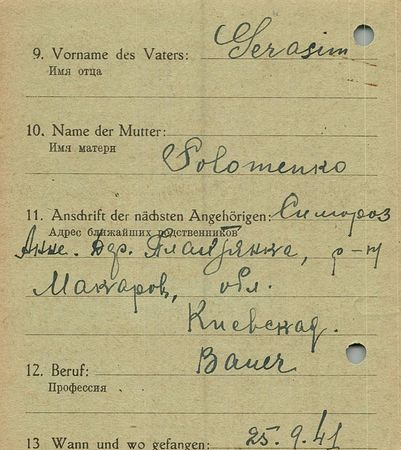 9. Vorname des Vaters: Gerasim
Имя отца
10. Name der Mutter:
Имя матери
Solomenko
11. Anschrift der nächsten Angehörigen: Симороз
Адрес ближайших родственников
Анне. Вдр. р-н
Макаров, обл.
Киевская.
Bauer
12. Beruf:
Профессия
13 Wann und wo gefangen: 25.9.41